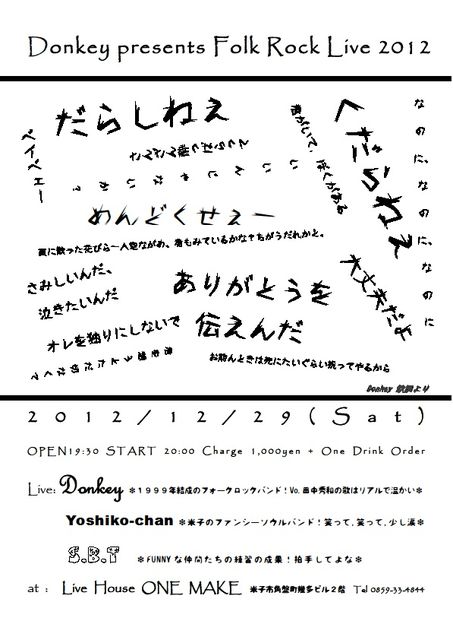 Donkey presents Folk Rock Live 2012
だらしねぇ
ベイベェー
へだらねぇ
なのに、なのに、なのに
君がいて、ぼくがある
めんどくせぇー
夏に散った花びら一人空ながめ、君もみているかな
さみしいんだ、
泣きたいんだ
ありがとうを
伝えんだ
大丈夫だよ
オレを独りにしないで
お前んときは死にたいぐらい祝ってやるから
Donkey 歌詞より
2012/12/29(Sat)
OPEN19:30 START 20:00 Charge 1,000yen + One Drink Order
Live: Donkey ＊１９９９年結成のフォークロックバンド！Vo. 田中秀和の歌はリアルで温かい＊
Yoshiko-chan ＊米子のファンシーソウルバンド！笑って、笑って、少し涙＊
S.B.T ＊FUNNYな仲間たちの練習の成果！拍手してよな＊
at : Live House ONE MAKE 米子市角盤町幾多ビル２階 Tel 0859-33-4844